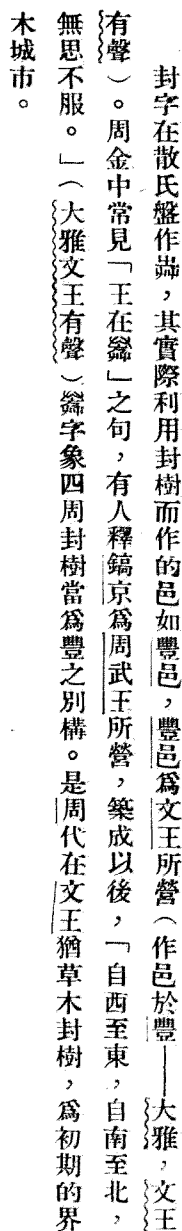 封字在散氏盤作𡴀,其實際利用封樹而作的邑如豐邑,豐邑爲文王所營(作邑於豐——大雅,文王
有聲)。周金中常見「王在䒤」之句,有人釋鎬京爲周武王所營,築成以後,「自西至東,自南至北,
無思不服。」(大雅文王有聲)字象四周封樹當爲豐之別構。是周代在文王猶草木封樹,爲初期的界
木城市。